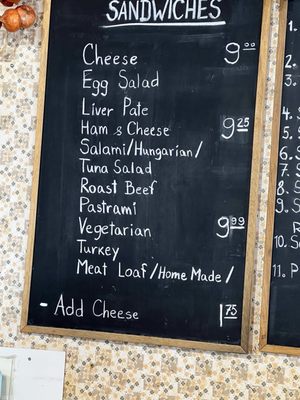 SANDWICHES
Cheese 9.00
Egg Salad
Liver Pate
Ham & Cheese 9 25
Salami/Hungarian/
Tuna Salad
Roast Beef
Pastrami
Vegetarian 9 99
Turkey
Meat Loaf/Home Made/
- Add Cheese 1 75
1.
4.
5.
6.
7.
8.
9.
10.
11. P